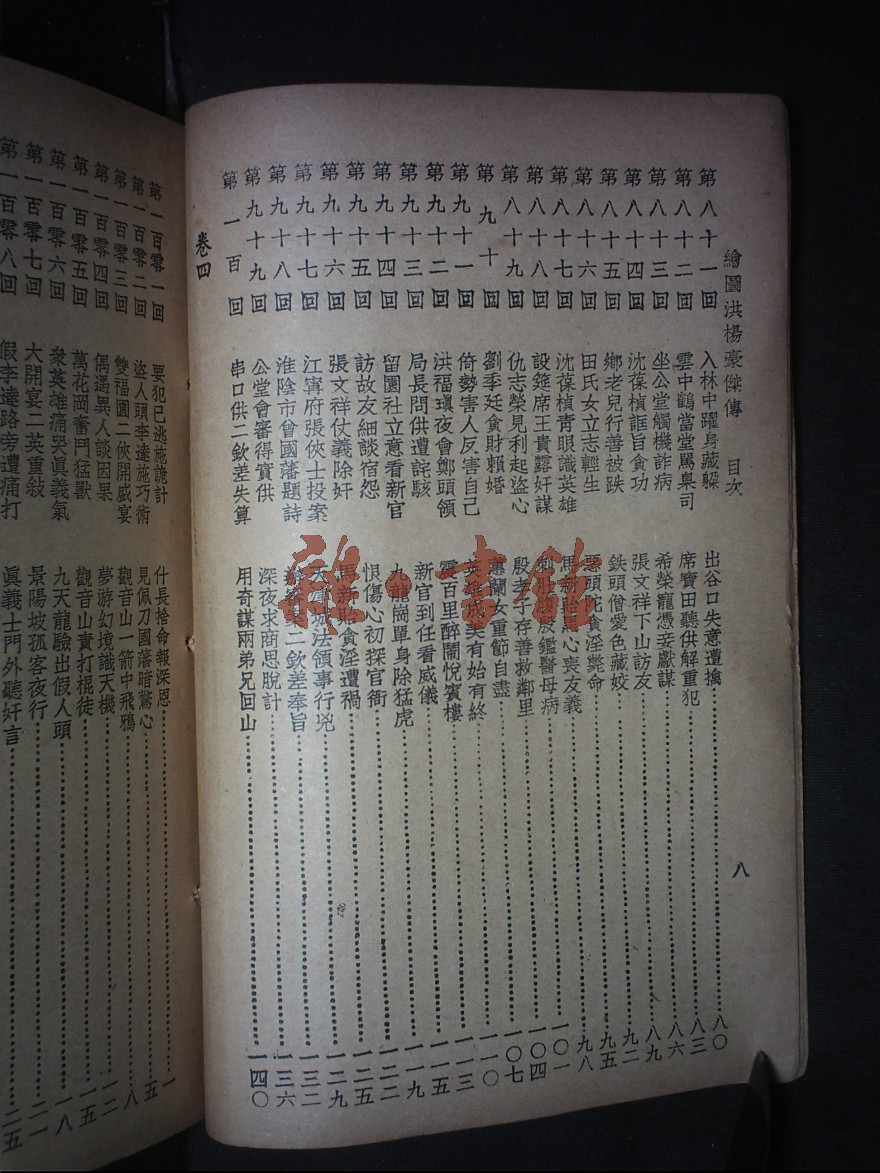 繪圖洪楊豪傑傳 目次 八
第八十一回 入林中躍身藏躲 出谷口失意遭擒 八〇
第八十二回 雲中鶴當堂罵臬司 席寶田聽供解重犯 八三
第八十三回 坐公堂觸機詐病 希榮寵憑妾獻謀 八六
第八十四回 沈葆楨誆旨貪功 張文祥下山訪友 八九
第八十五回 鄉老兒行善被跌 鉄頭僧愛色藏姣 九二
第八十六回 田氏女立志輕生 惡頭陀貪淫斃命 九五
第八十七回 沈葆楨青眼識英雄 馬新貽黑心喪友義 九八
第八十八回 設筵席王貴露奸謀 股鑑醫母病 一〇一
第八十九回 仇志榮見利起盜心 殷孝子存善救鄰里 一〇四
第九十回 劉季廷貪財賴婚 蘭女重節自盡 一〇七
第九十一回 倚勢害人反害自己 英雄成美有始有終 一一〇
第九十二回 洪福瑱夜會鄭頭領 震百里醉鬧悅賓樓
第九十三回 局長問供遭詫駭 新官到任看威儀
第九十四回 留園社立意看新官 九龍崗單身除猛虎
第九十五回 訪故友細談宿怨 恨傷心初探官衙
第九十六回 張文祥仗義除奸 馬新貽貪淫遭禍
第九十七回 江寧府張俠士投案 法領事行兇 一二九
第九十八回 淮陰市曾國藩題詩 二欽差奉旨 一三二
第九十九回 公堂會審得實供 深夜求商思脫計 一三六
第一百回 串口供二欽差失算 用奇謀兩弟兄回山 一四〇
卷四
第一百零一回 要犯已逃施詭計 什長捨命報深恩 一
第一百零二回 盜人頭李達施巧術 見佩刀國藩暗驚心 五
第一百零三回 雙福園二俠開盛宴 觀音山一箭中飛鴉 八
第一百零四回 偶遇異人談因果 夢游幻境識天機
第一百零五回 萬花岡奮鬥猛獸 觀音山責打棍徒 一五
第一百零六回 衆英雄痛哭眞義氣 九天龍驗出假人頭 一八
第一百零七回 大開宴二英重敍 景陽坡孤客夜行 二一
第一百零八回 假李達路旁遭痛打 眞義士門外聽奸言 二五
雜·書館